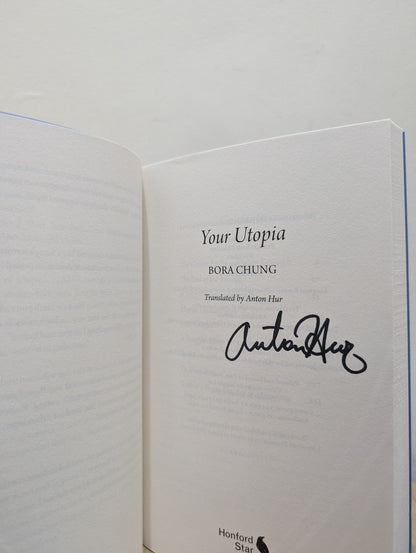 Your Utopia
BORA CHUNG
Translated by Anton Hur
Anton Hur
Honford
Star